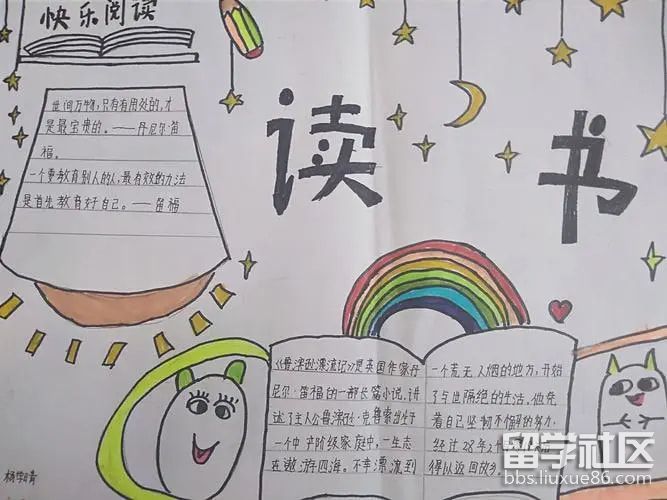 快乐阅读
世间万物,只有有用处的,才
是最宝贵的。——丹尼尔笛
福。
一个要教育别人的人,最有效的办法
是首先教育好自己。——笛福
读书
《鲁滨逊漂流记》是英国作家丹
尼尔·笛福的一部长篇小说。讲
述了主人公鲁滨逊·克鲁索出生于
一个中产阶级家庭中,一生志
在遨游四海。不幸漂流到
一个荒无人烟的地方,开始
了与世隔绝的生活。他凭
着自己坚韧不懈的努力,
经过28年2
得以返回故乡
留学社区
bbs.liuxue86.com